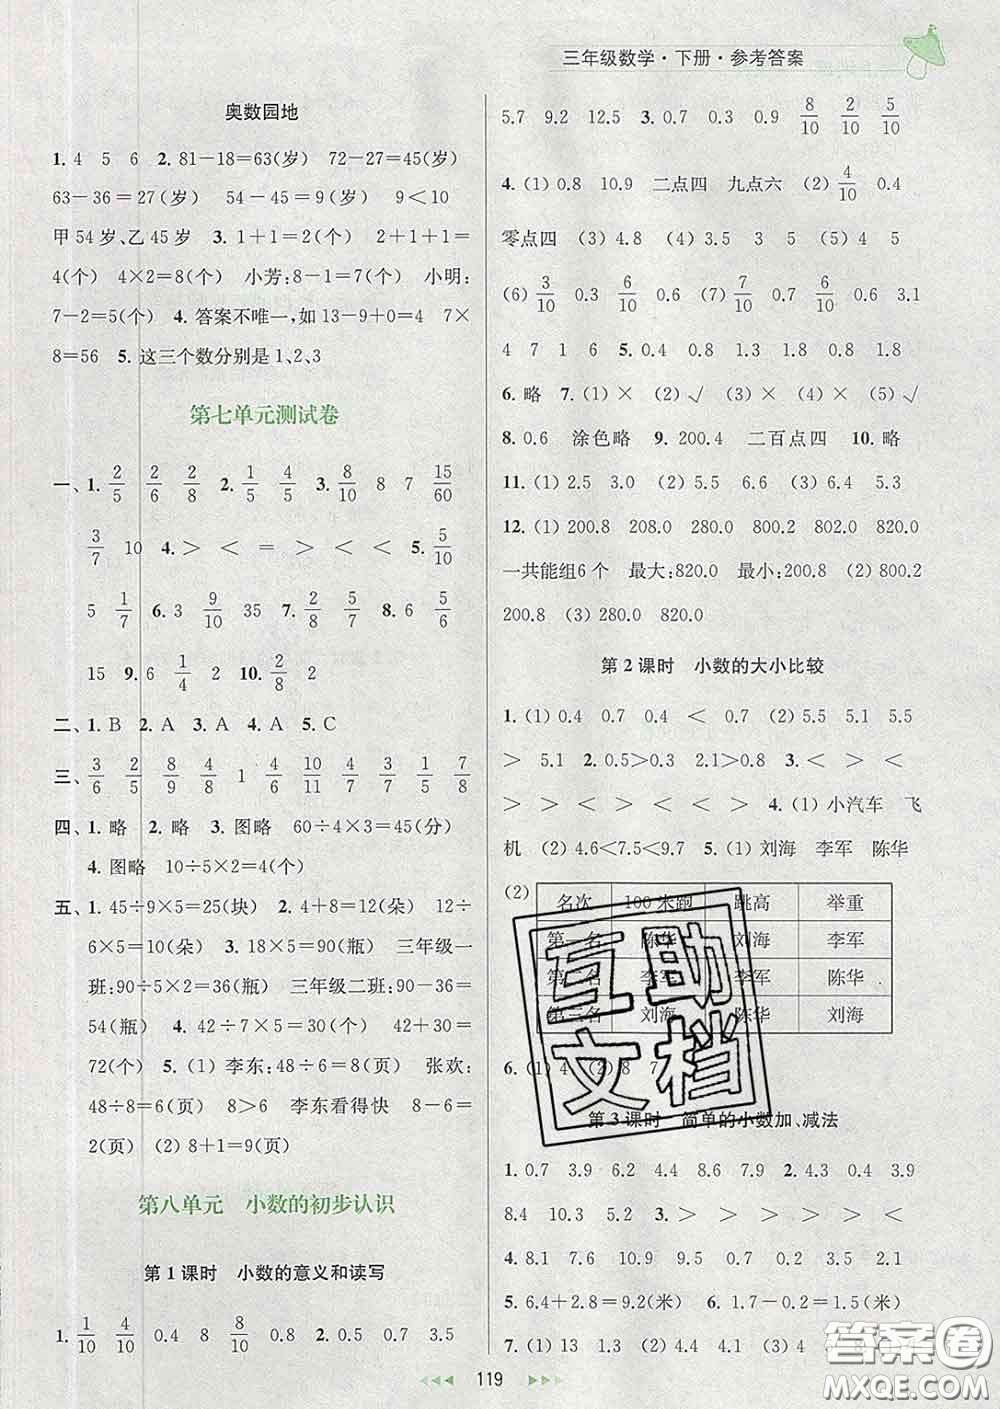 三年级数学·下册·参考答案
奥数园地
1. 4 5 6 2. 81－18=63(岁) 72－27=45(岁)
63－36=27(岁) 54－45=9(岁) 9＜10
甲54岁、乙45岁 3. 1+1=2(个) 2+1+1=
4(个) 4×2=8(个) 小芳:8－1=7(个) 小明:
7－2=5(个) 4. 答案不唯一,如 13－9+0=4 7×
8=56 5. 这三个数分别是1、2、3
第七单元测试卷
一、1. 2/5 2/6 2/8 2. 1/5 4/5 3. 8/10 8 7 15/60
3/7 10 4. ＞ ＜ = ＞ ＜ ＜ 5. 5/10
5 1/7 6. 3 9/10 35 7. 2/8 5/7 8. 6 5/6
15 9. 6 1/4 2 10. 2/8 2
二、1. B 2. A 3. A 4. A 5. C
三、3/6 2/5 8/9 4/8 1 4/6 10/11 7/7 1/5 3/8 7/8
四、1. 略 2. 略 3. 图略 60÷4×3=45(分)
4. 图略 10÷5×2=4(个)
五、1. 45÷9×5=25(块) 2. 4+8=12(朵) 12÷
6×5=10(朵) 3. 18×5=90(瓶) 三年级一
班:90÷5×2=36(瓶) 三年级二班:90－36=
54(瓶) 4. 42÷7×5=30(个) 42+30=
72(个) 5. (1) 李东:48÷6=8(页) 张欢:
48÷8=6(页) 8＞6 李东看得快 8－6=
2(页) (2) 8+1=9(页)
第八单元 小数的初步认识
第1课时 小数的意义和读写
1. 1/10 4/10 0.4 8 8/10 0.8 2. 0.5 0.7 3.5
5.7 9.2 12.5 3. 0.7 0.3 0.9 8/10 2/10 5/10
4. (1) 0.8 10.9 二点四 九点六 (2) 4/10 0.4
零点四 (3) 4.8 (4) 3.5 3 5 (5) 4 5
(6) 3/10 0.3 6/10 0.6 (7) 7/10 0.7 6/10 0.6 3.1
4 7 1 6 5. 0.4 0.8 1.3 0.8 1.8
6. 略 7. (1) × (2) √ (3) × (4) × (5) √
8. 0.6 涂色略 9. 200.4 二百点四 10. 略
11. (1) 2.5 3.0 (2) 5.2 (3) 6.4 5.3
12. (1) 200.8 208.0 280.0 800.2 802.0 820.0
一共能组6个 最大:820.0 最小:200.8 (2) 800.2
200.8 (3) 280.0 820.0
第2课时 小数的大小比较
1. (1) 0.4 0.7 0.4 ＜ 0.7 (2) 5.5 5.1 5.5
＞ 5.1 2. 0.5＞0.3 2.1＞0.8 3. ＜ ＞ ＜
＞ ＞ ＜ ＜ ＞ ＜ 4. (1) 小汽车 飞
机 (2) 4.6＜7.5＜9.7 5. (1) 刘海 李军 陈华
(2)
名次 100米跑 跳高 举重
第一名 陈华 刘海 李军
第二名 李军 李军 陈华
第三名 刘海 陈华 刘海
6. (1) 4 (2) 8 7
第3课时 简单的小数加、减法
1. 0.7 3.9 4.4 8.6 4.8 7.9 2. 4.3 4.9
8.4 10.3 5.2 3. ＞ ＞ ＞ ＞ ＞ ＜
4. 0.8 1.5 0.9 0.9 9.5 0.6 4.1 4.8
5. 6.4+2.8=9.2(米) 6. 1.7－0.2=1.5(米)
7. (1) 13 (2) 9.1
119
互助
文档
答案圈
MXQE.COM